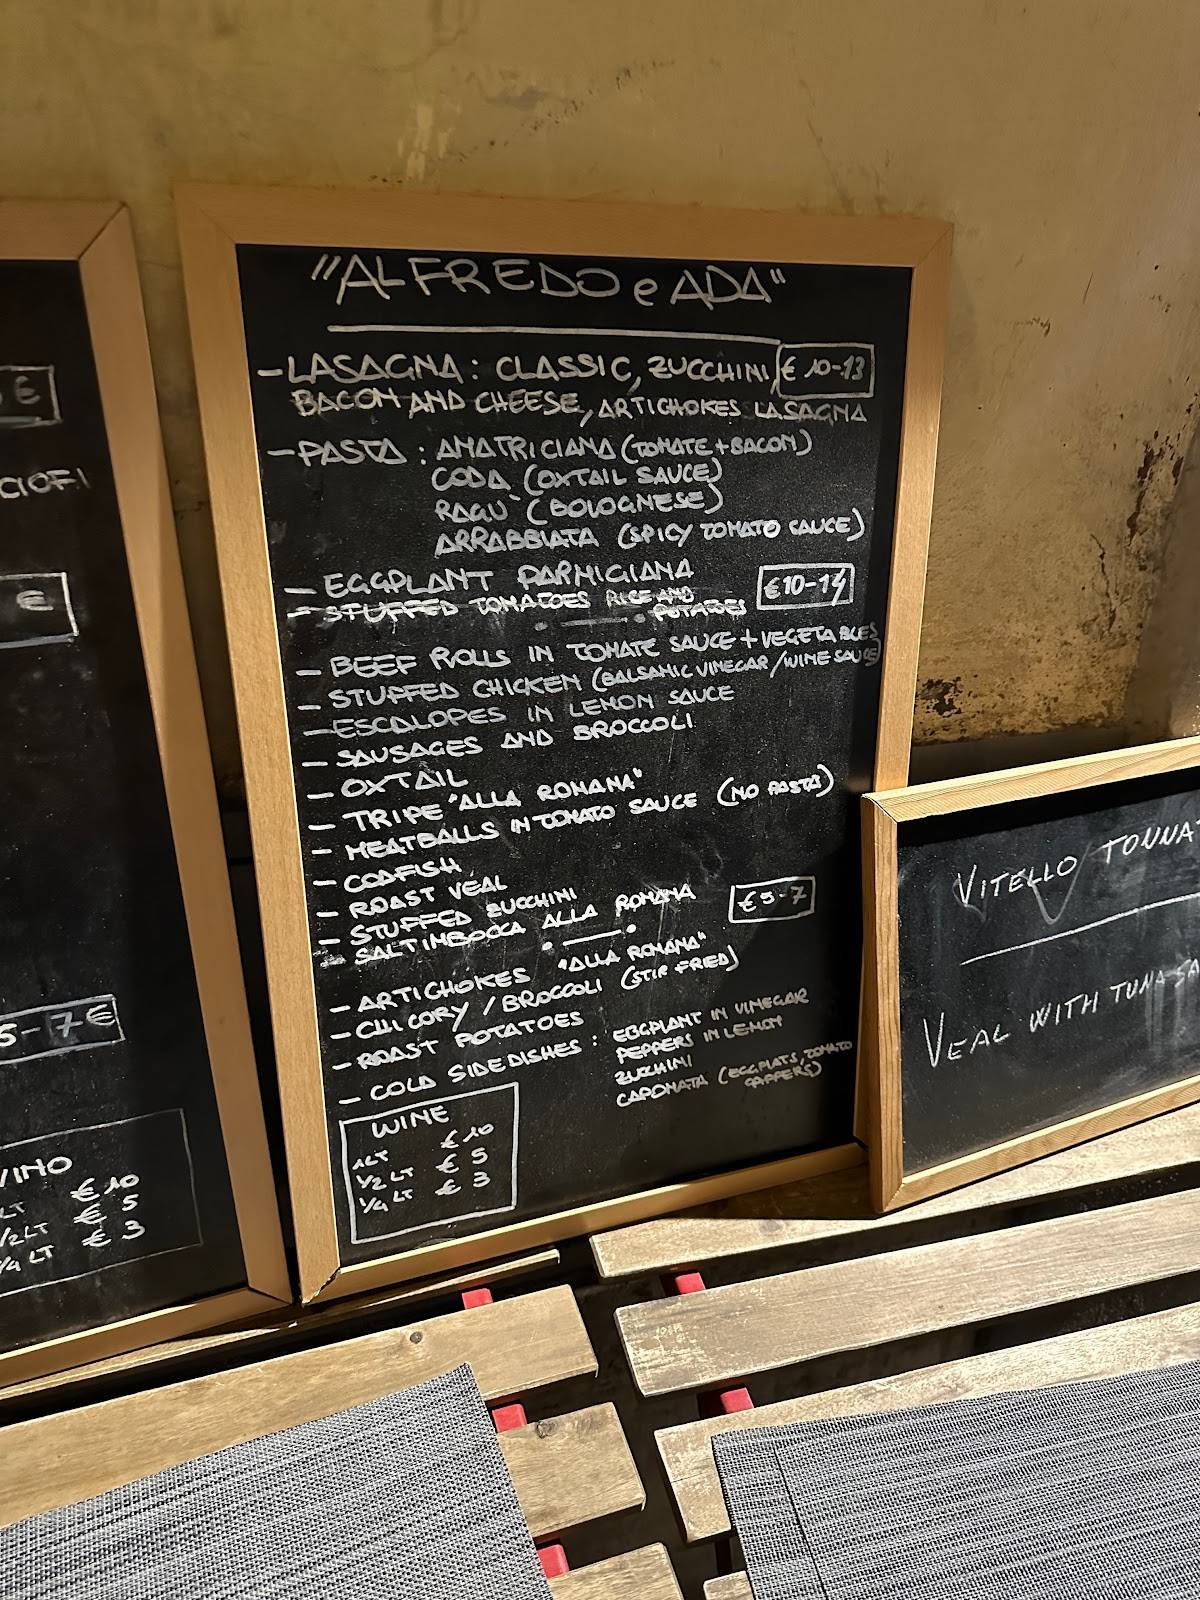 "ALFREDO e ADA"
- LASAGNA : CLASSIC, ZUCCHINI, € 10-13
BACON AND CHEESE, ARTICHOKES LASAGNA
- PASTA : AMATRICIANA (TOMATE + BACON)
CODA (OXTAIL SAUCE)
RAGÙ (BOLOGNESE)
ARRABBIATA (SPICY TOMATO SAUCE)
- EGGPLANT PARMIGIANA
- STUFFED TOMATOES RICE AND POTATOES
€10-14
- BEEF ROLLS IN TOMATE SAUCE + VEGETABLES
- STUFFED CHICKEN (BALSAMIC VINEGAR / WINE SAUCE)
- ESCALOPES IN LEMON SAUCE
- SAUSAGES AND BROCCOLI
- OXTAIL
- TRIPE "ALLA ROMANA"
- MEATBALLS IN TOMATO SAUCE (NO PASTA)
- CODFISH
- ROAST VEAL
- STUFFED ZUCCHINI
- SALTIMBOCCA ALLA ROMANA
€ 5-7
- ARTICHOKES "ALLA ROMANA"
- CHICORY / BROCCOLI (STIR FRIED)
- ROAST POTATOES
- COLD SIDE DISHES : EGGPLANT IN VINEGAR
PEPPERS IN LEMON
ZUCHINI
CAPONATA (EGGPLATS, TOMATO PEPPERS)
WINE
1LT € 10
1/2 LT € 5
1/4 LT € 3
€
CIOFI
€
5-7€
VINO
LT € 10
1/2 LT € 5
1/4 LT € 3
VITELLO TONNAT
VEAL WITH TUNA SA